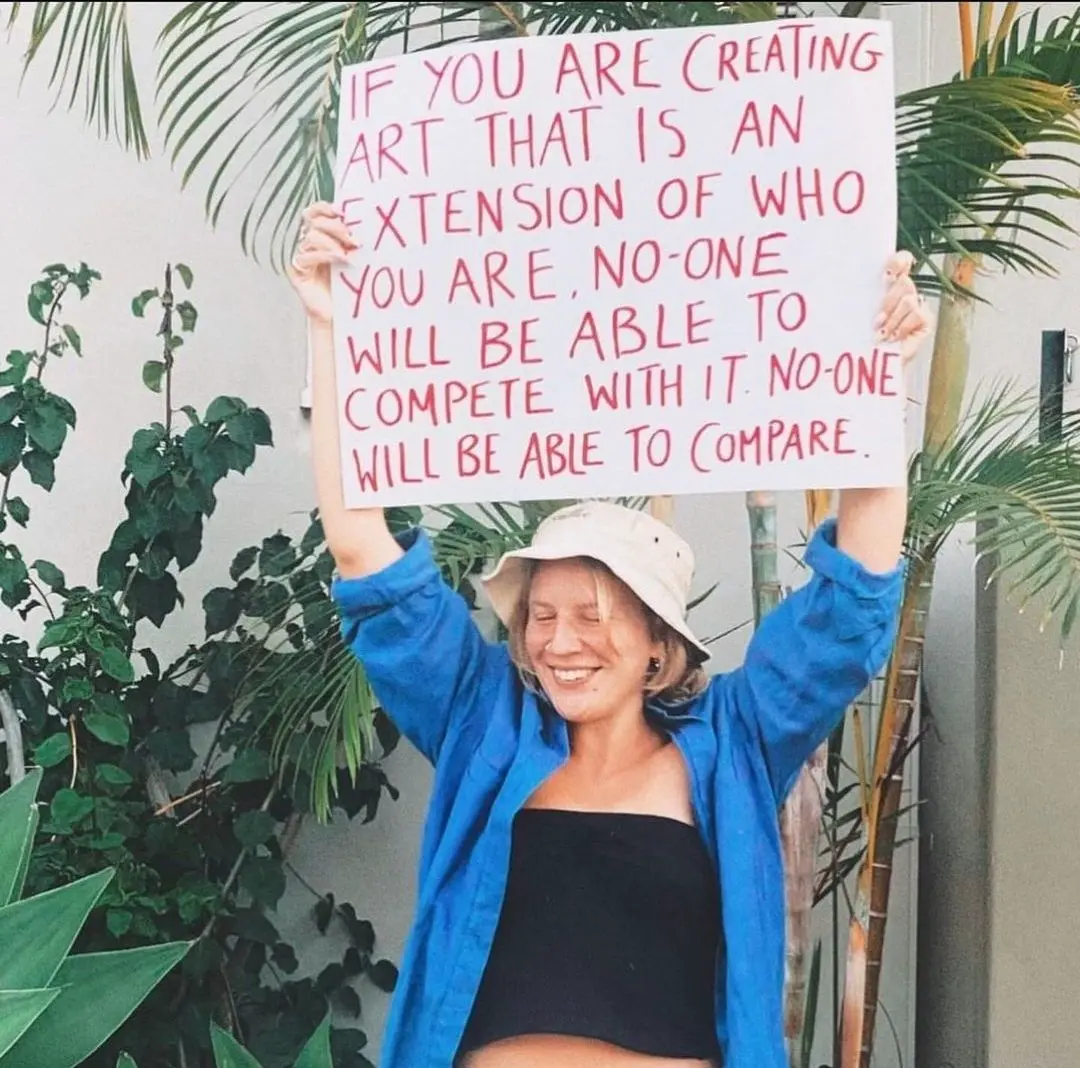 IF YOU ARE CREATING
ART THAT IS AN
EXTENSION OF WHO
YOU ARE, NO-ONE
WILL BE ABLE TO
COMPETE WITH IT. NO-ONE
WILL BE ABLE TO COMPARE.